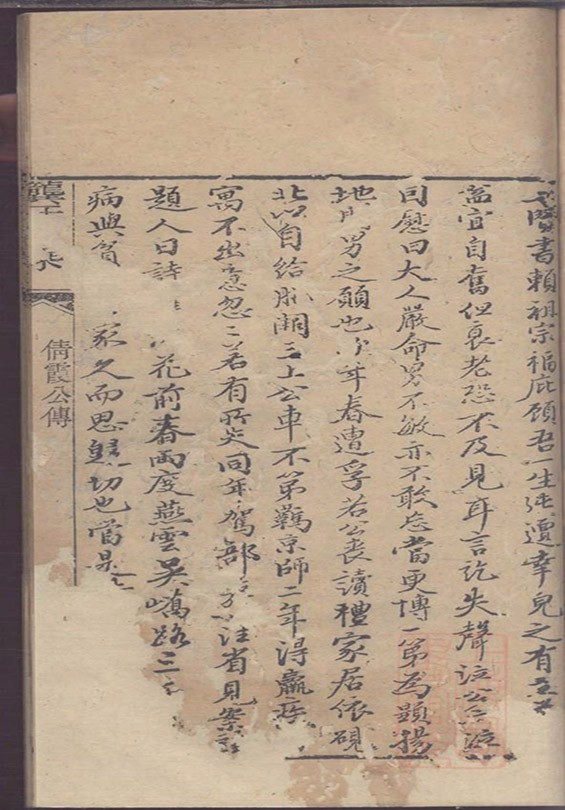 賢書賴祖宗福庇顧吾一生迍邅幸兒之有
宜自奮但衰老恐不及見耳言訖失聲泣公亦泣
曰慰曰大人嚴命男不敏亦不敢忘當更博一第為顯揚
地男之願也次年春遭孚若公喪讀禮家居依硯
北以自給服闋三上公車不第羈京師二年得羸疾
寓不出意忽忽若有所失同年駕部 公往省見案
題人日詩 花前春兩度燕雲吳嶠路三
病與貧 家久而思歸切也嘗
倩霞公傳